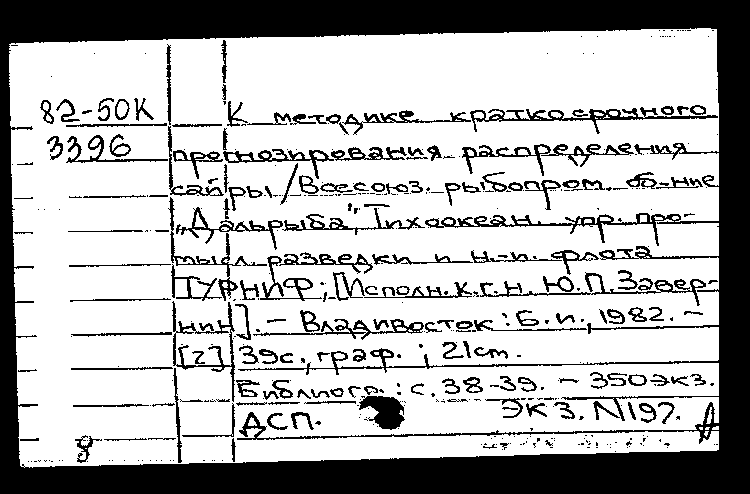 82-50К К методике краткосрочного
3396 прогнозирования распределения
сайры / Всесоюз. рыбопром. об-ние
"Дальрыба", Тихоокеан. упр. про-
мысл. разведки и н.-и. флота
ТУРНИФ; [Исполн. к.г.н. Ю.П. Завер-
нин]. - Владивосток : Б. и., 1982. -
[2] 39с., граф. ; 21см.
Библиогр.: с. 38-39. - 350 экз.
ДСП. ЭКЗ. N197.
8